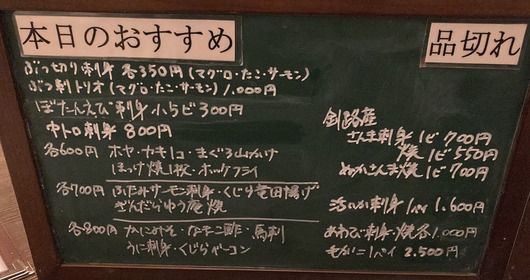 本日のおすすめ
ぶつ切り刺身 各350円(マグロ・たこ・サーモン)
ぶつ刺トリオ(マグロ・たこ・サーモン) 1,000円
ぼたんえび刺身 小ラビ300円
中トロ刺身 800円
各600円 ホヤ・カキ1コ・まぐろ山かけ
ほっけ焼1枚・ホッケフライ
各700円 サーモン刺身・くじら竜田揚げ
ぎんだらゆう庵焼
各800円 かにみそ・なまこ酢・馬刺
うに刺身・くじらベーコン
品切れ
釧路産
さんま刺身 1ピ 700円
焼 1ピ 550円
ぬかさんま焼 1ピ 700円
活いか刺身 1パイ 1,600円
あわび刺身・焼各1,000円
毛がに1パイ 2,500円